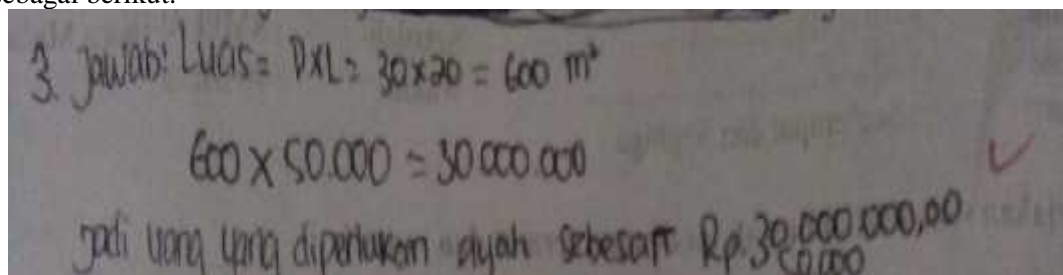 sebagai berikut:
3. Jawab: Luas = P x L = 30 x 20 = 600 m²
600 x 50.000 = 30.000.000
jadi uang yang diperlukan ayah sebesar Rp. 30.000.000,00
50.000